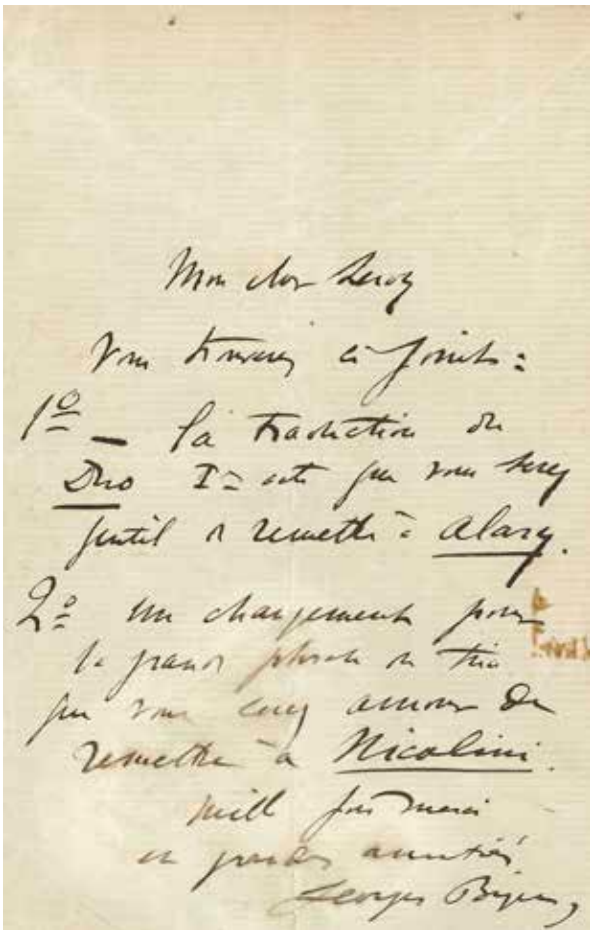 Mon cher Leroy
Vous trouverez ci joints :
1º — La traduction du
Duo Iᵉʳ acte que vous serez
gentil de remettre à Alary.
2º un changement pour
la grande phrase du trio
que vous serez amour de
remettre à Nicolini.
mille fois merci
et grandes amitiés
Georges